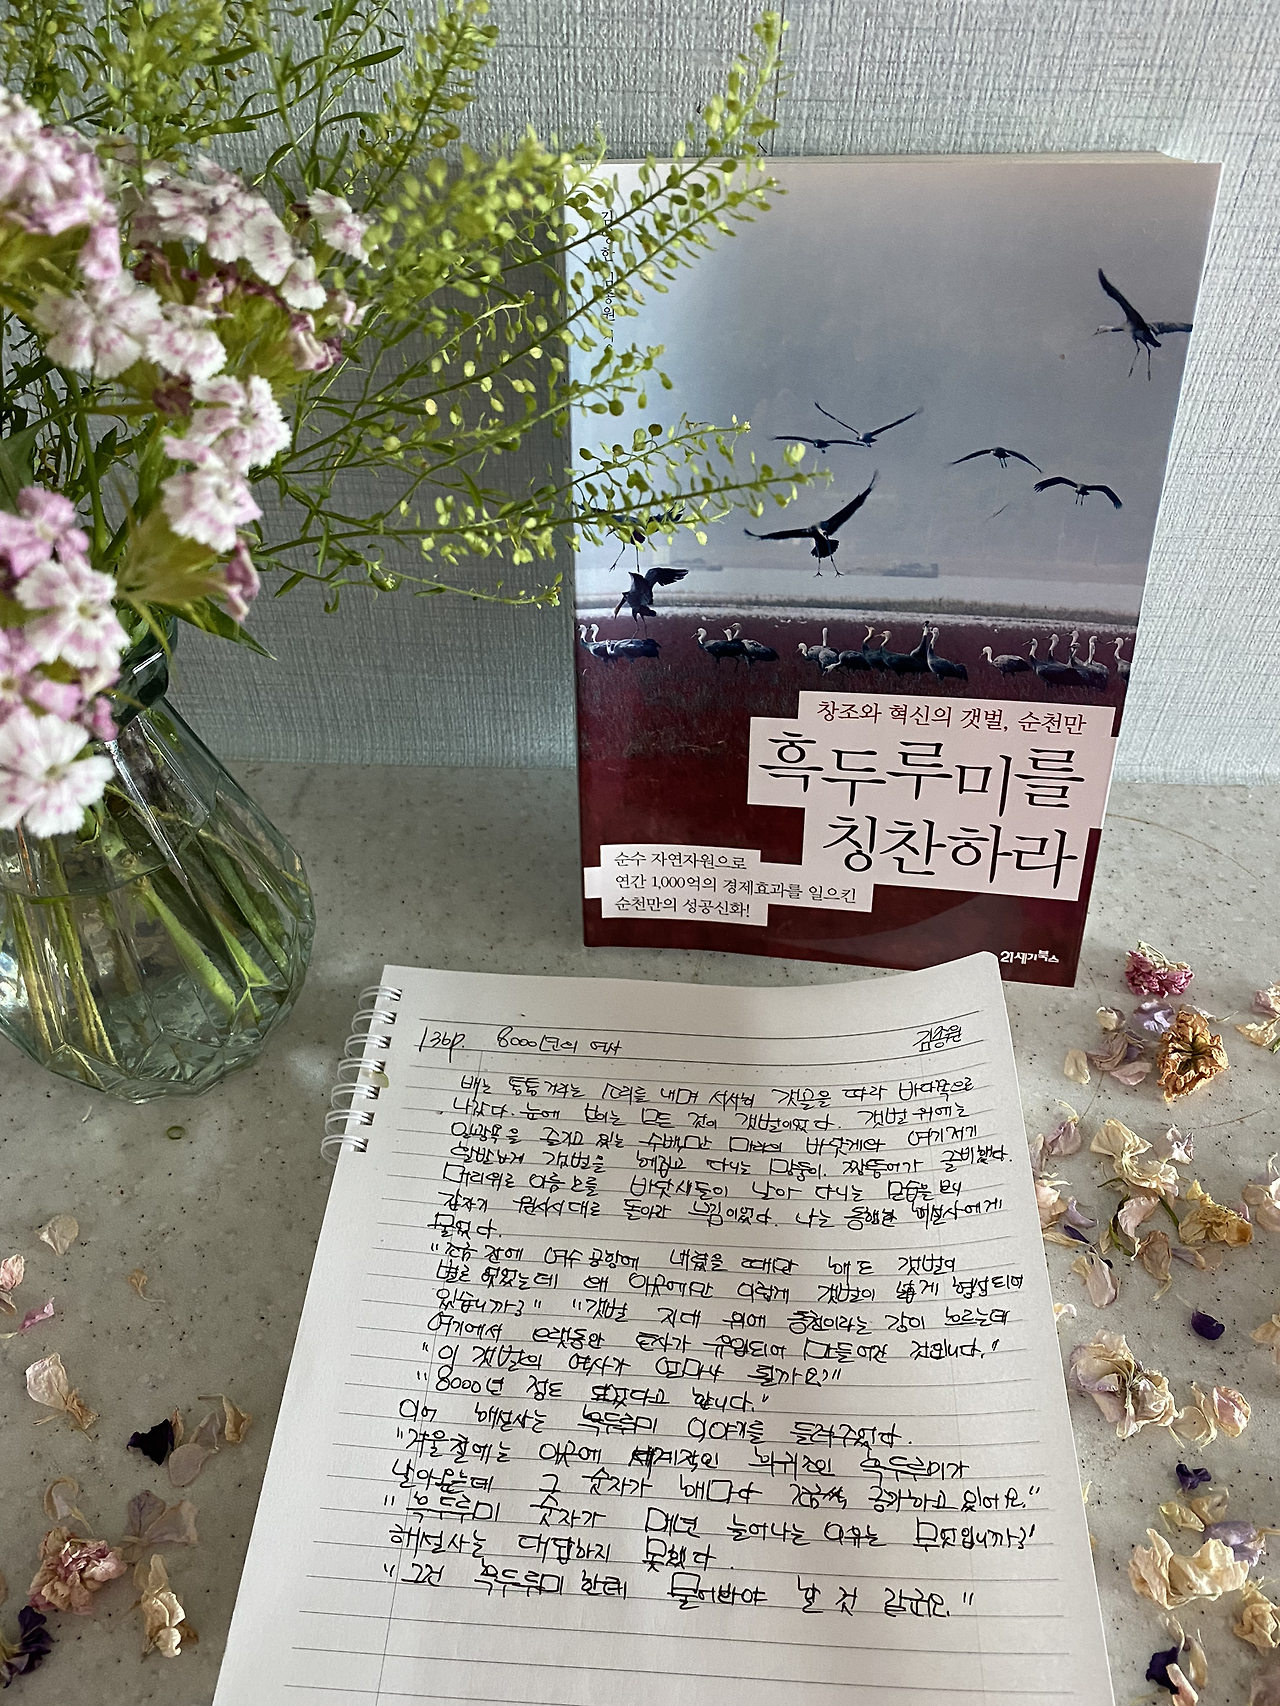 창조와 혁신의 갯벌, 순천만
흑두루미를
칭찬하라
순수 자연자원으로
연간 1,000억의 경제효과를 일으킨
순천만의 성공신화!
21세기북스
136p. 8000년의 역사 김종원
배는 통통거리는 소리를 내며 서서히 갯골을 따라 바다쪽으로
나갔다. 눈에 보이는 모든 것이 갯벌이었다. 갯벌 위에는
일광욕을 즐기고 있는 수백만 마리의 바닷게와 여기저기
활발하게 갯벌을 헤집고 다니는 망둥이, 짱뚱어가 즐비했다.
머리위로 이름모를 바닷새들이 날아 다니는 모습을 보니
갑자기 원시시대로 돌아간 느낌이었다. 나는 동행한 해설사에게
물었다.
"조금 전에 여수공항에 내렸을 때만 해도 갯벌이
별로 없었는데 왜 이곳에만 이렇게 갯벌이 넓게 형성되어
있습니까?" "갯벌 지대 위에 동천이라는 강이 흐르는데
여기에서 오랫동안 토사가 유입되어 만들어진 것입니다."
"이 갯벌의 역사가 얼마나 될까요?"
"8000년 정도 되었다고 합니다."
이어 해설사는 흑두루미 이야기를 들려주었다.
"겨울철에는 이곳에 세계적인 희귀조인 흑두루미가
날아오는데 그 숫자가 해마다 조금씩 증가하고 있어요."
"흑두루미 숫자가 매년 늘어나는 이유는 무엇입니까?"
해설사는 대답하지 못했다.
"그건 흑두루미한테 물어봐야 할 것 같군요."